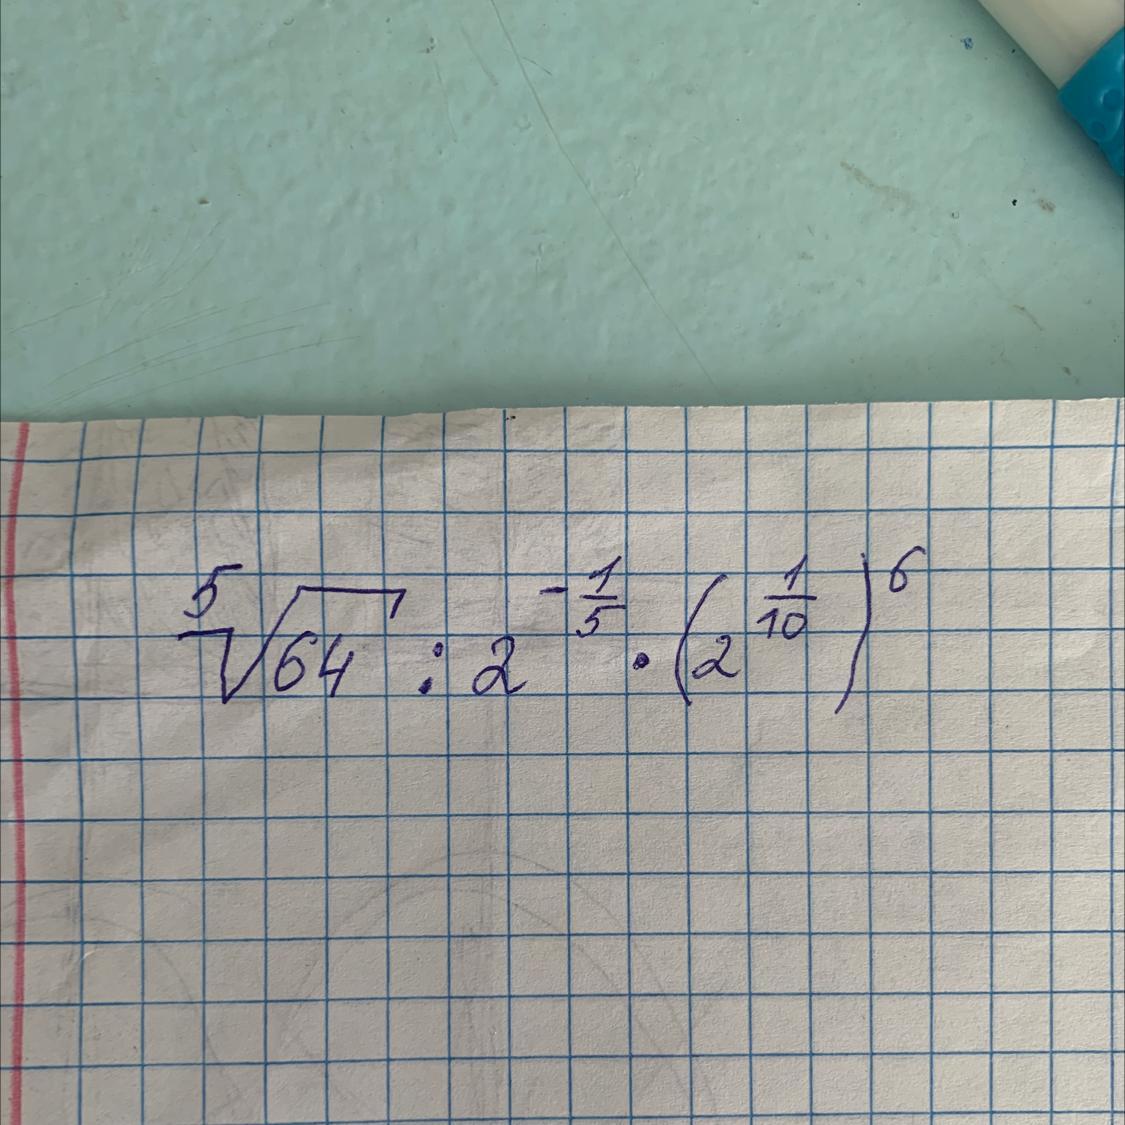 ⁵√64 : 2^(-1/5) · (2^(1/10))^6